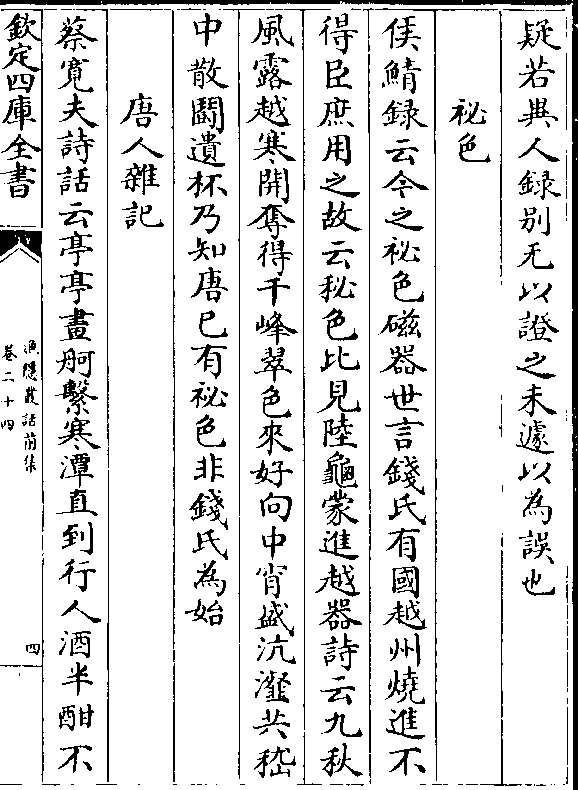 疑若與人録别无以證之未遽以為誤也
祕色
侯鯖録云今之祕色磁器世言錢氏有國越州燒進不
得臣庶用之故云秘色比見陸龜蒙進越器詩云九秋
風露越寒開奪得千峰翠色來好向中宵盛沆瀣共嵇
中散鬬遺杯乃知唐已有祕色非錢氏為始
唐人雜記
蔡寛夫詩話云亭亭畫舸繫寒潭直到行人酒半酣不
欽定四庫全書
漁隱叢話前集
卷二十四
四